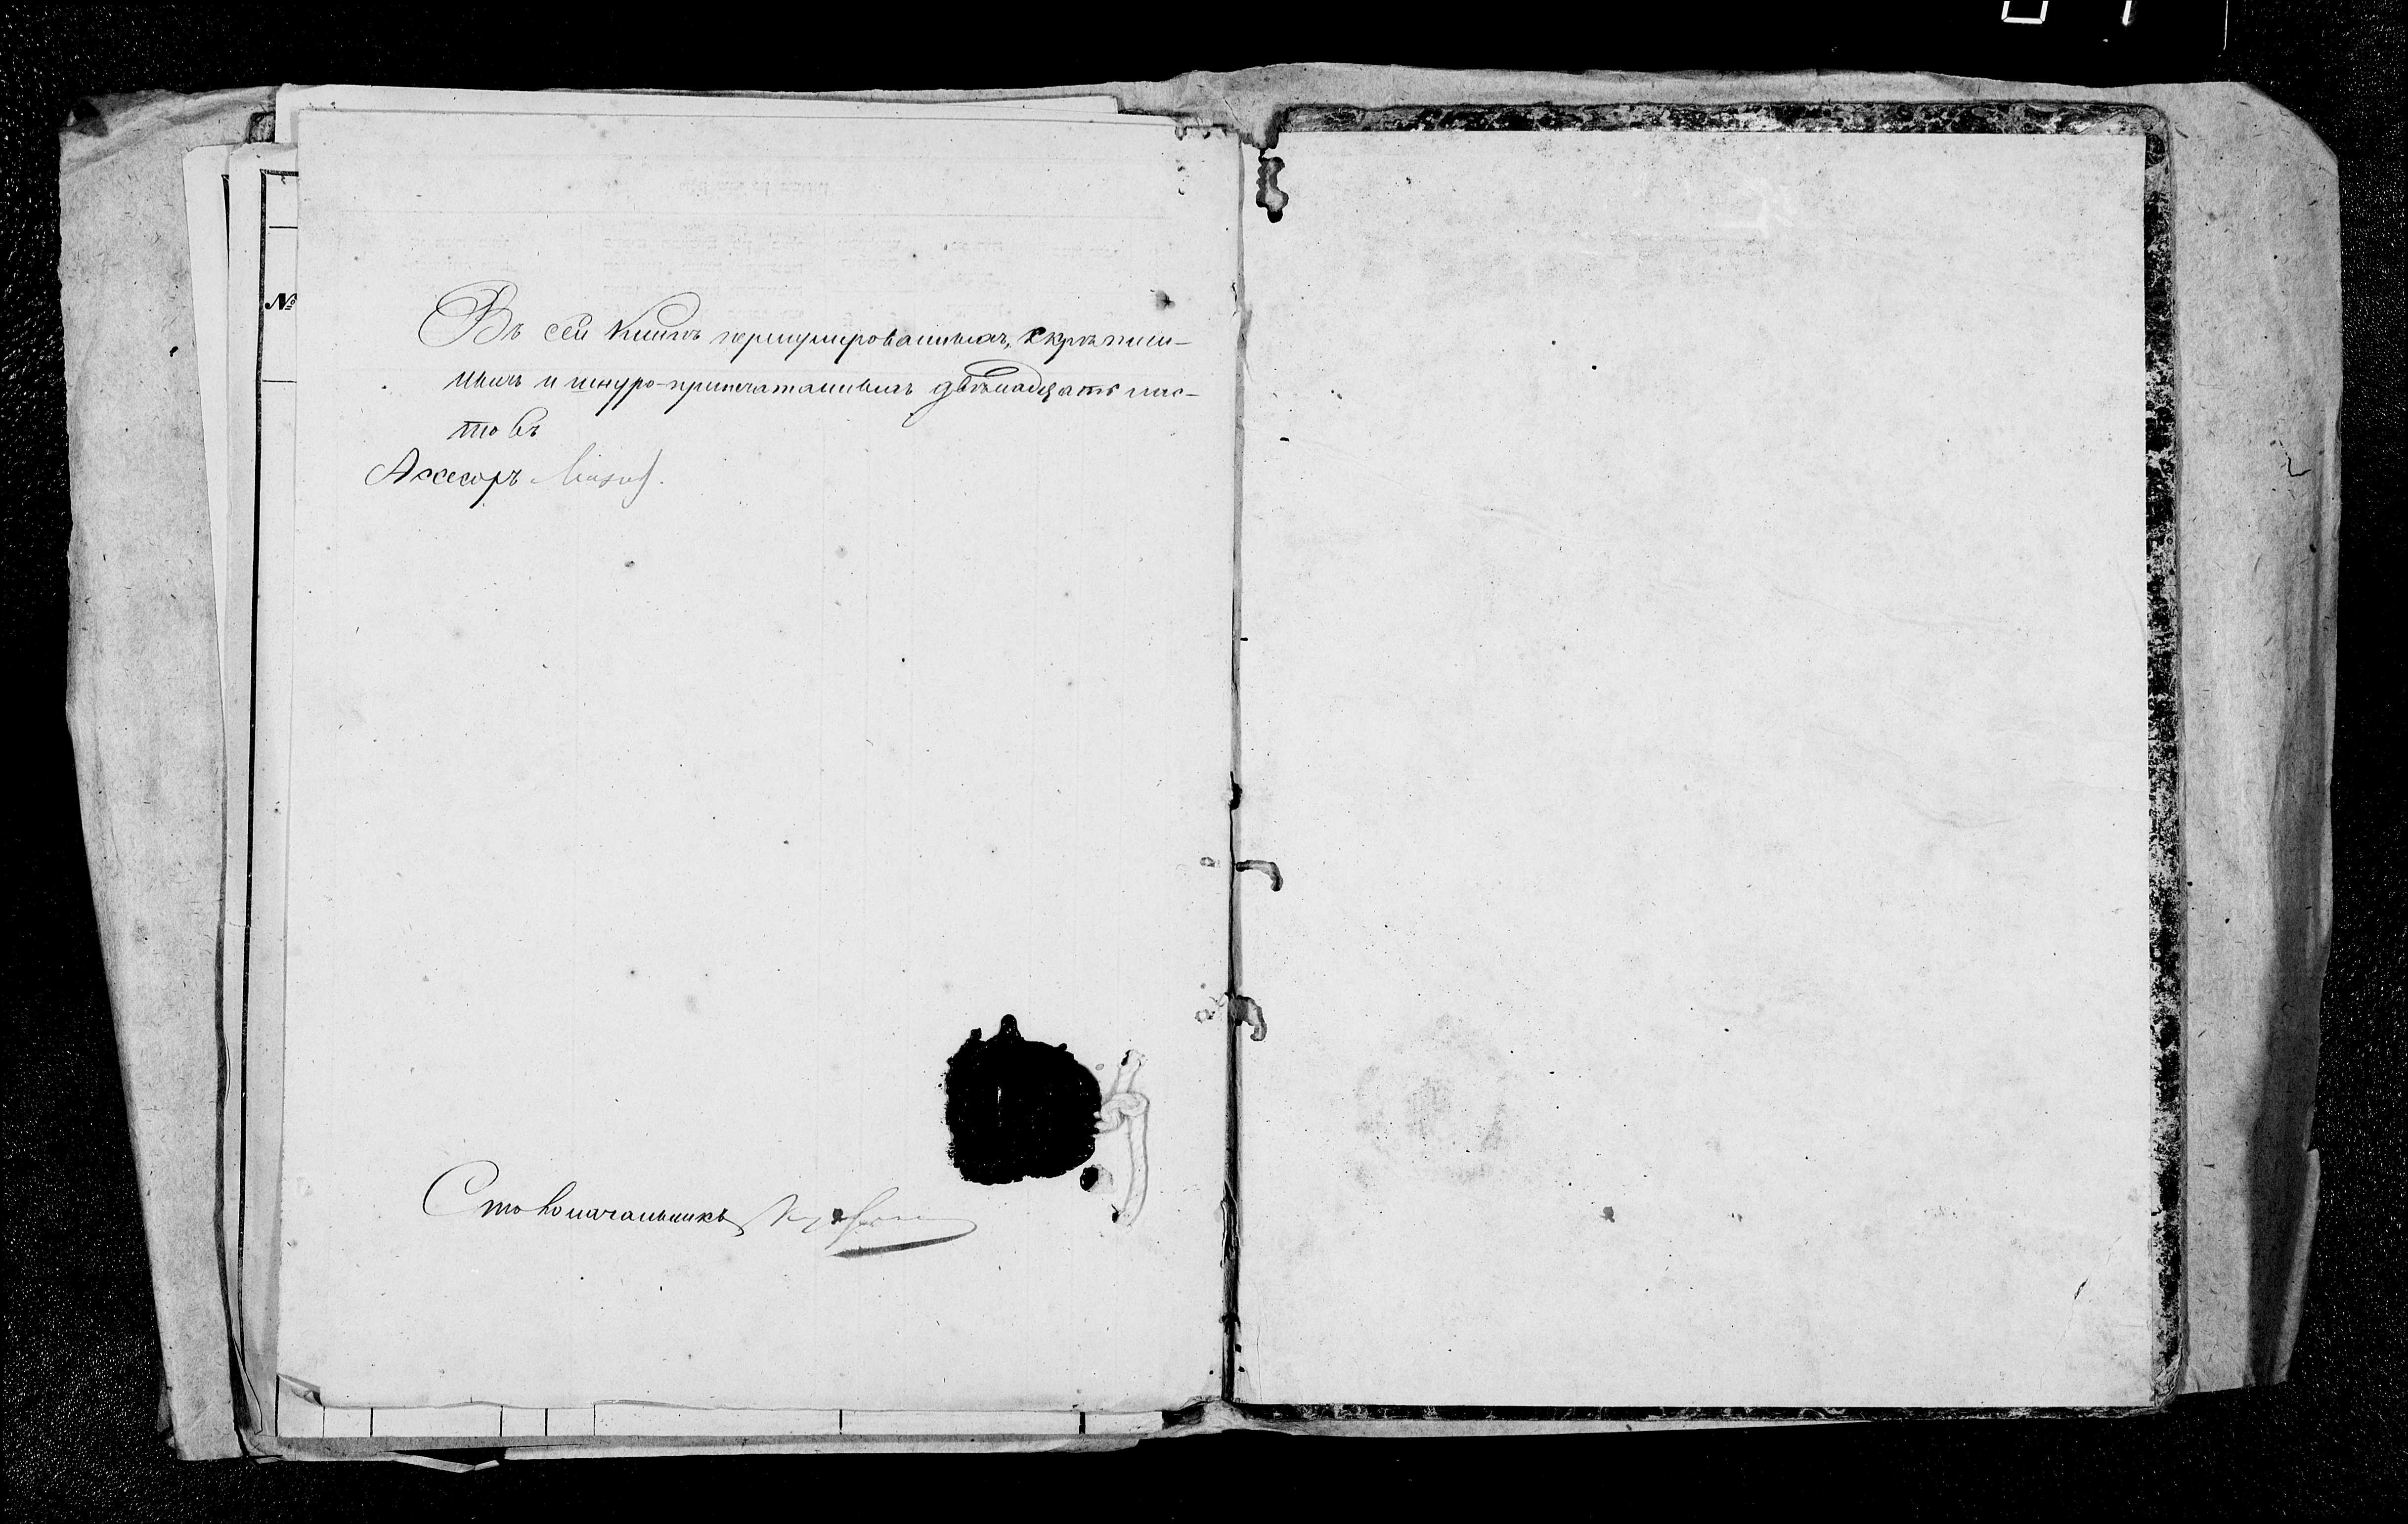 №
Въ сей книгѣ перенумерованныхъ, скрѣплен-
ныхъ и шнуро-припечатанныхъ двѣнадцать лис-
товъ
Асесоръ
Столоначальникъ